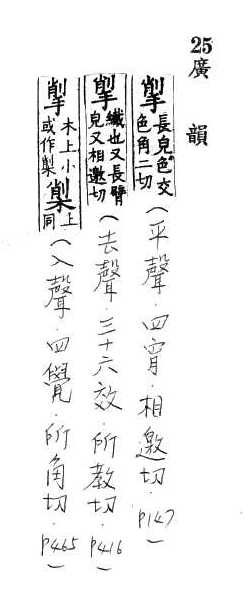 25廣韻
揱 長皃色交色角二切(平聲.四宵.相邀切.P147)
揱 纖也又長臂皃又相邀切(去聲.三十六效.所教切.P416)
揱 木上小或作𣐅 上同(入聲.四覺.所角切.P465)